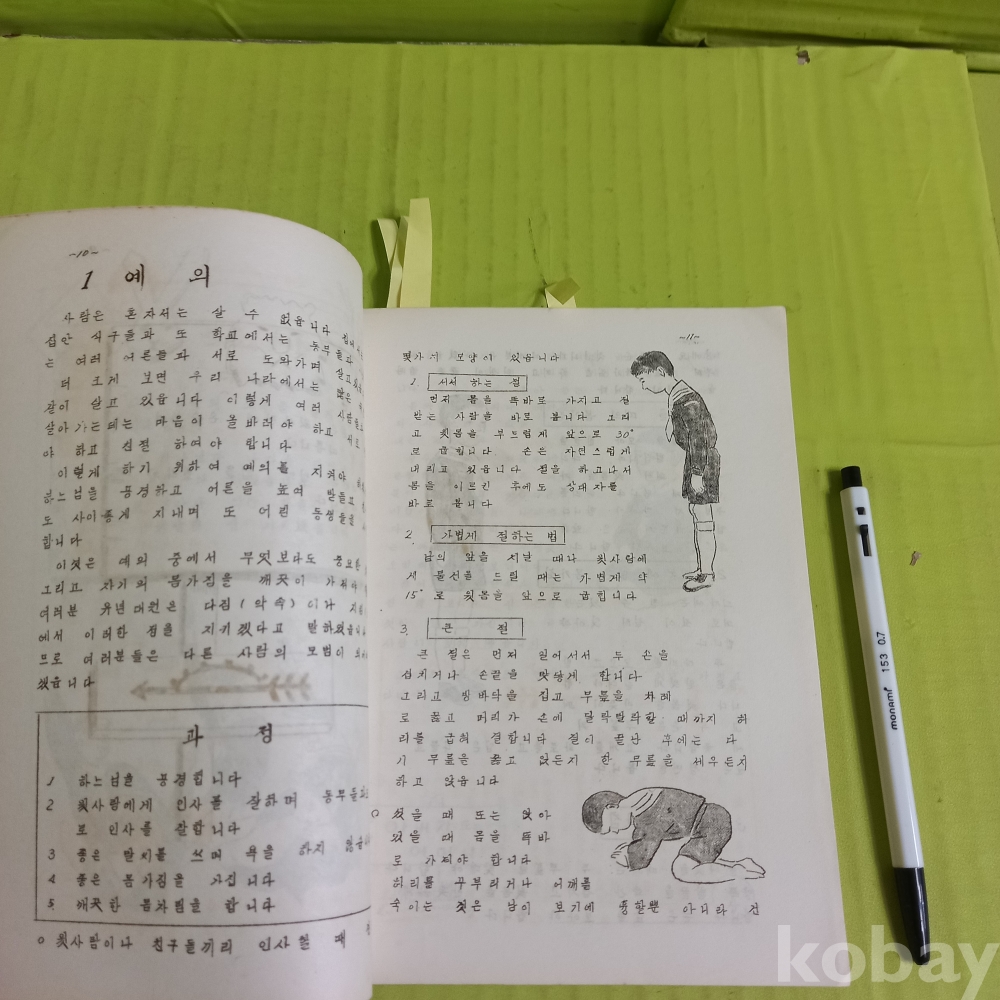 ~10~
1 예 의
사람은 혼자서는 살 수 없읍니다
집안 식구들과 또 학교에서는 동무들과
는 여러 어른들과 서로 도와가며 살고있
더 크게 보면 우리 나라에서는 많은
같이 살고 있읍니다 이렇게 여러 사람들
살아가는데는 마음이 올바러야 하고 서로
야 하고 친절 하여야 합니다
이렇게 하기 위하여 예의를 지켜야
하느님을 공경하고 어른을 높여 받들고
도 사이좋게 지내며 또 어린 동생들을
합니다
이것은 예의 중에서 무엇보다도 중요한
그리고 자기의 몸가짐을 깨끗이 가져야
여러분 유년대원은 다짐(약속)이나
에서 이러한 점을 지키겠다고 말하였습니
므로 여러분들은 다른 사람의 모범이 되
겠읍니다
과 정
1 하느님을 공경합니다
2 윗사람에게 인사를 잘하며 동무들
로 인사를 잘합니다
3 좋은 말씨를 쓰며 욕을 하지 않습
4 좋은 몸가짐을 가집니다
5. 깨끗한 몸차림을 합니다
○ 윗사람이나 친구들끼리 인사할 때
~11~
몇가지 모양이 있읍니다
1 서서 하는 절
먼저 몸을 똑바로 가지고 절
받는 사람을 바로 봅니다 그리
고 윗몸을 부드럽게 앞으로 30°
로 굽힙니다 손은 자연스럽게
내리고 있읍니다 절을 하고나서
몸을 이르킨 후에도 상대자를
바로 봅니다
2. 가볍게 절하는 법
남의 앞을 지날 때나 윗사람에
게 물건을 드릴 때는 가볍게 약
15°로 윗몸을 앞으로 굽힙니다
3. 큰 절
큰 절은 먼저 일어서서 두 손을
섭치거나 손끝을 맞닿게 합니다
그리고 방바닥을 짚고 무릎을 차례
로 꿇고 머리가 손에 닿락말락할 때까지 허
리를 굽혀 절합니다 절이 끝난 후에는 다
시 무릎을 꿇고 앉든지 한 무릎을 세우든지
하고 앉읍니다
○ 섰을 때 또는 앉아
있을 때 몸을 똑바
로 가져야 합니다
허리를 꾸부리거나 어깨를
숙이는 것은 남이 보기에 흉할뿐 아니라 건
monami 153 0.7
kobay